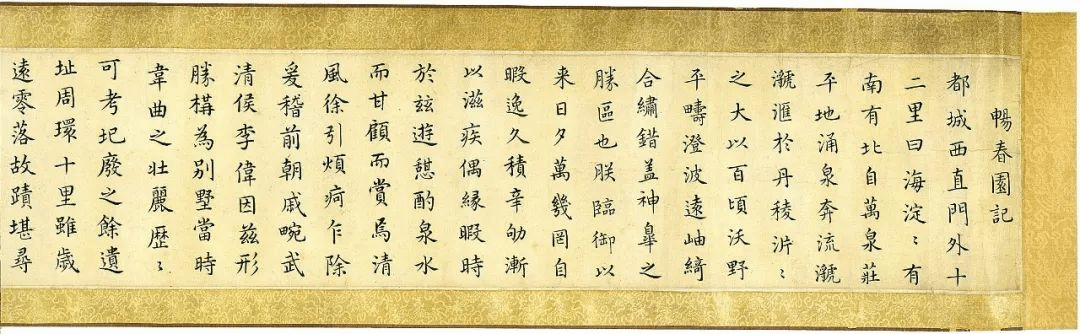 暢春園記
都城西直門外十
二里曰海淀〻有
南有北自萬泉莊
平地涌泉奔流㶁
㶁滙於丹稜沜〻
之大以百頃沃野
平疇澄波遠岫綺
合繡錯盖神臯之
勝區也朕臨御以
来日夕萬幾罔自
暇逸久積辛劬漸
以滋疾偶緣暇時
於玆遊憇酌泉水
而甘顧而賞焉清
風徐引煩疴乍除
爰稽前朝戚畹武
清侯李偉因茲形
勝構為別墅當時
韋曲之壯麗歷〻
可考圮廢之餘遺
址周環十里雖歲
遠零落故蹟堪尋